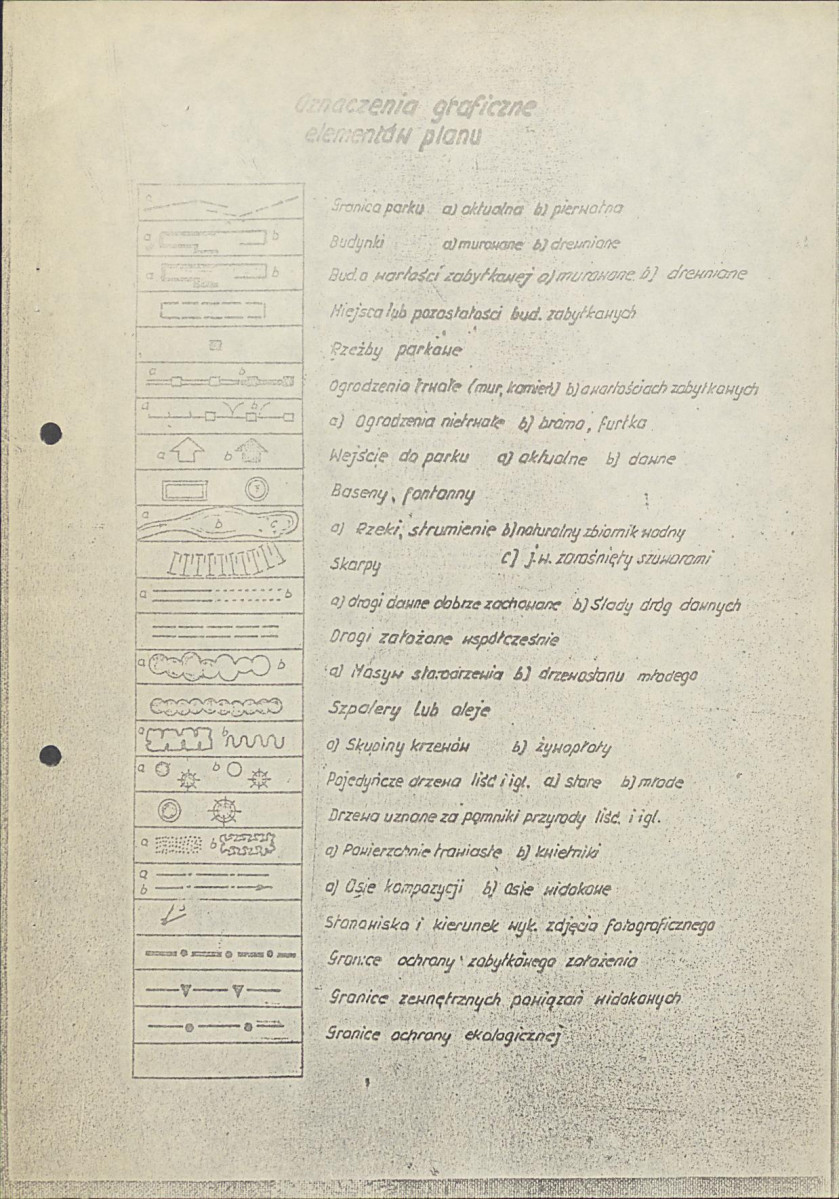 Oznaczenia graficzne
elementów planu
a
Granica parku a) aktualna b) pierwotna
a b
Budynki a) murowane b) drewniane
a b
Bud. o wartości zabytkowej a) murowane b) drewniane
Miejsca lub pozostałości bud. zabytkowych
Rzeźby parkowe
a b
Ogrodzenia trwałe (mur, kamień) b) o wartościach zabytkowych
a b
a) Ogrodzenia nietrwałe b) brama, furtka
a b
Wejście do parku a) aktualne b) dawne
Baseny, fontanny
a b c
a) Rzeki, strumienie b) naturalny zbiornik wodny
c) j.w. zarośnięty szuwarami
Skarpy
a b
a) drogi dawne dobrze zachowane b) ślady dróg dawnych
Drogi założone współcześnie
a b
a) Masyw starodrzewia b) drzewostanu młodego
Szpalery lub aleje
a b
a) Skupiny krzewów b) żywopłoty
a b
Pojedyńcze drzewa liść i igl. a) stare b) młode
Drzewa uznane za pomniki przyrody liść. i igl.
a b
a) Powierzchnie trawiaste b) kwietniki
a
b
a) Osie kompozycji b) osie widokowe
Stanowiska i kierunek wyk. zdjęcia fotograficznego
Granice ochrony zabytkowego założenia
Granice zewnętrznych powiązań widokowych
Granice ochrony ekologicznej